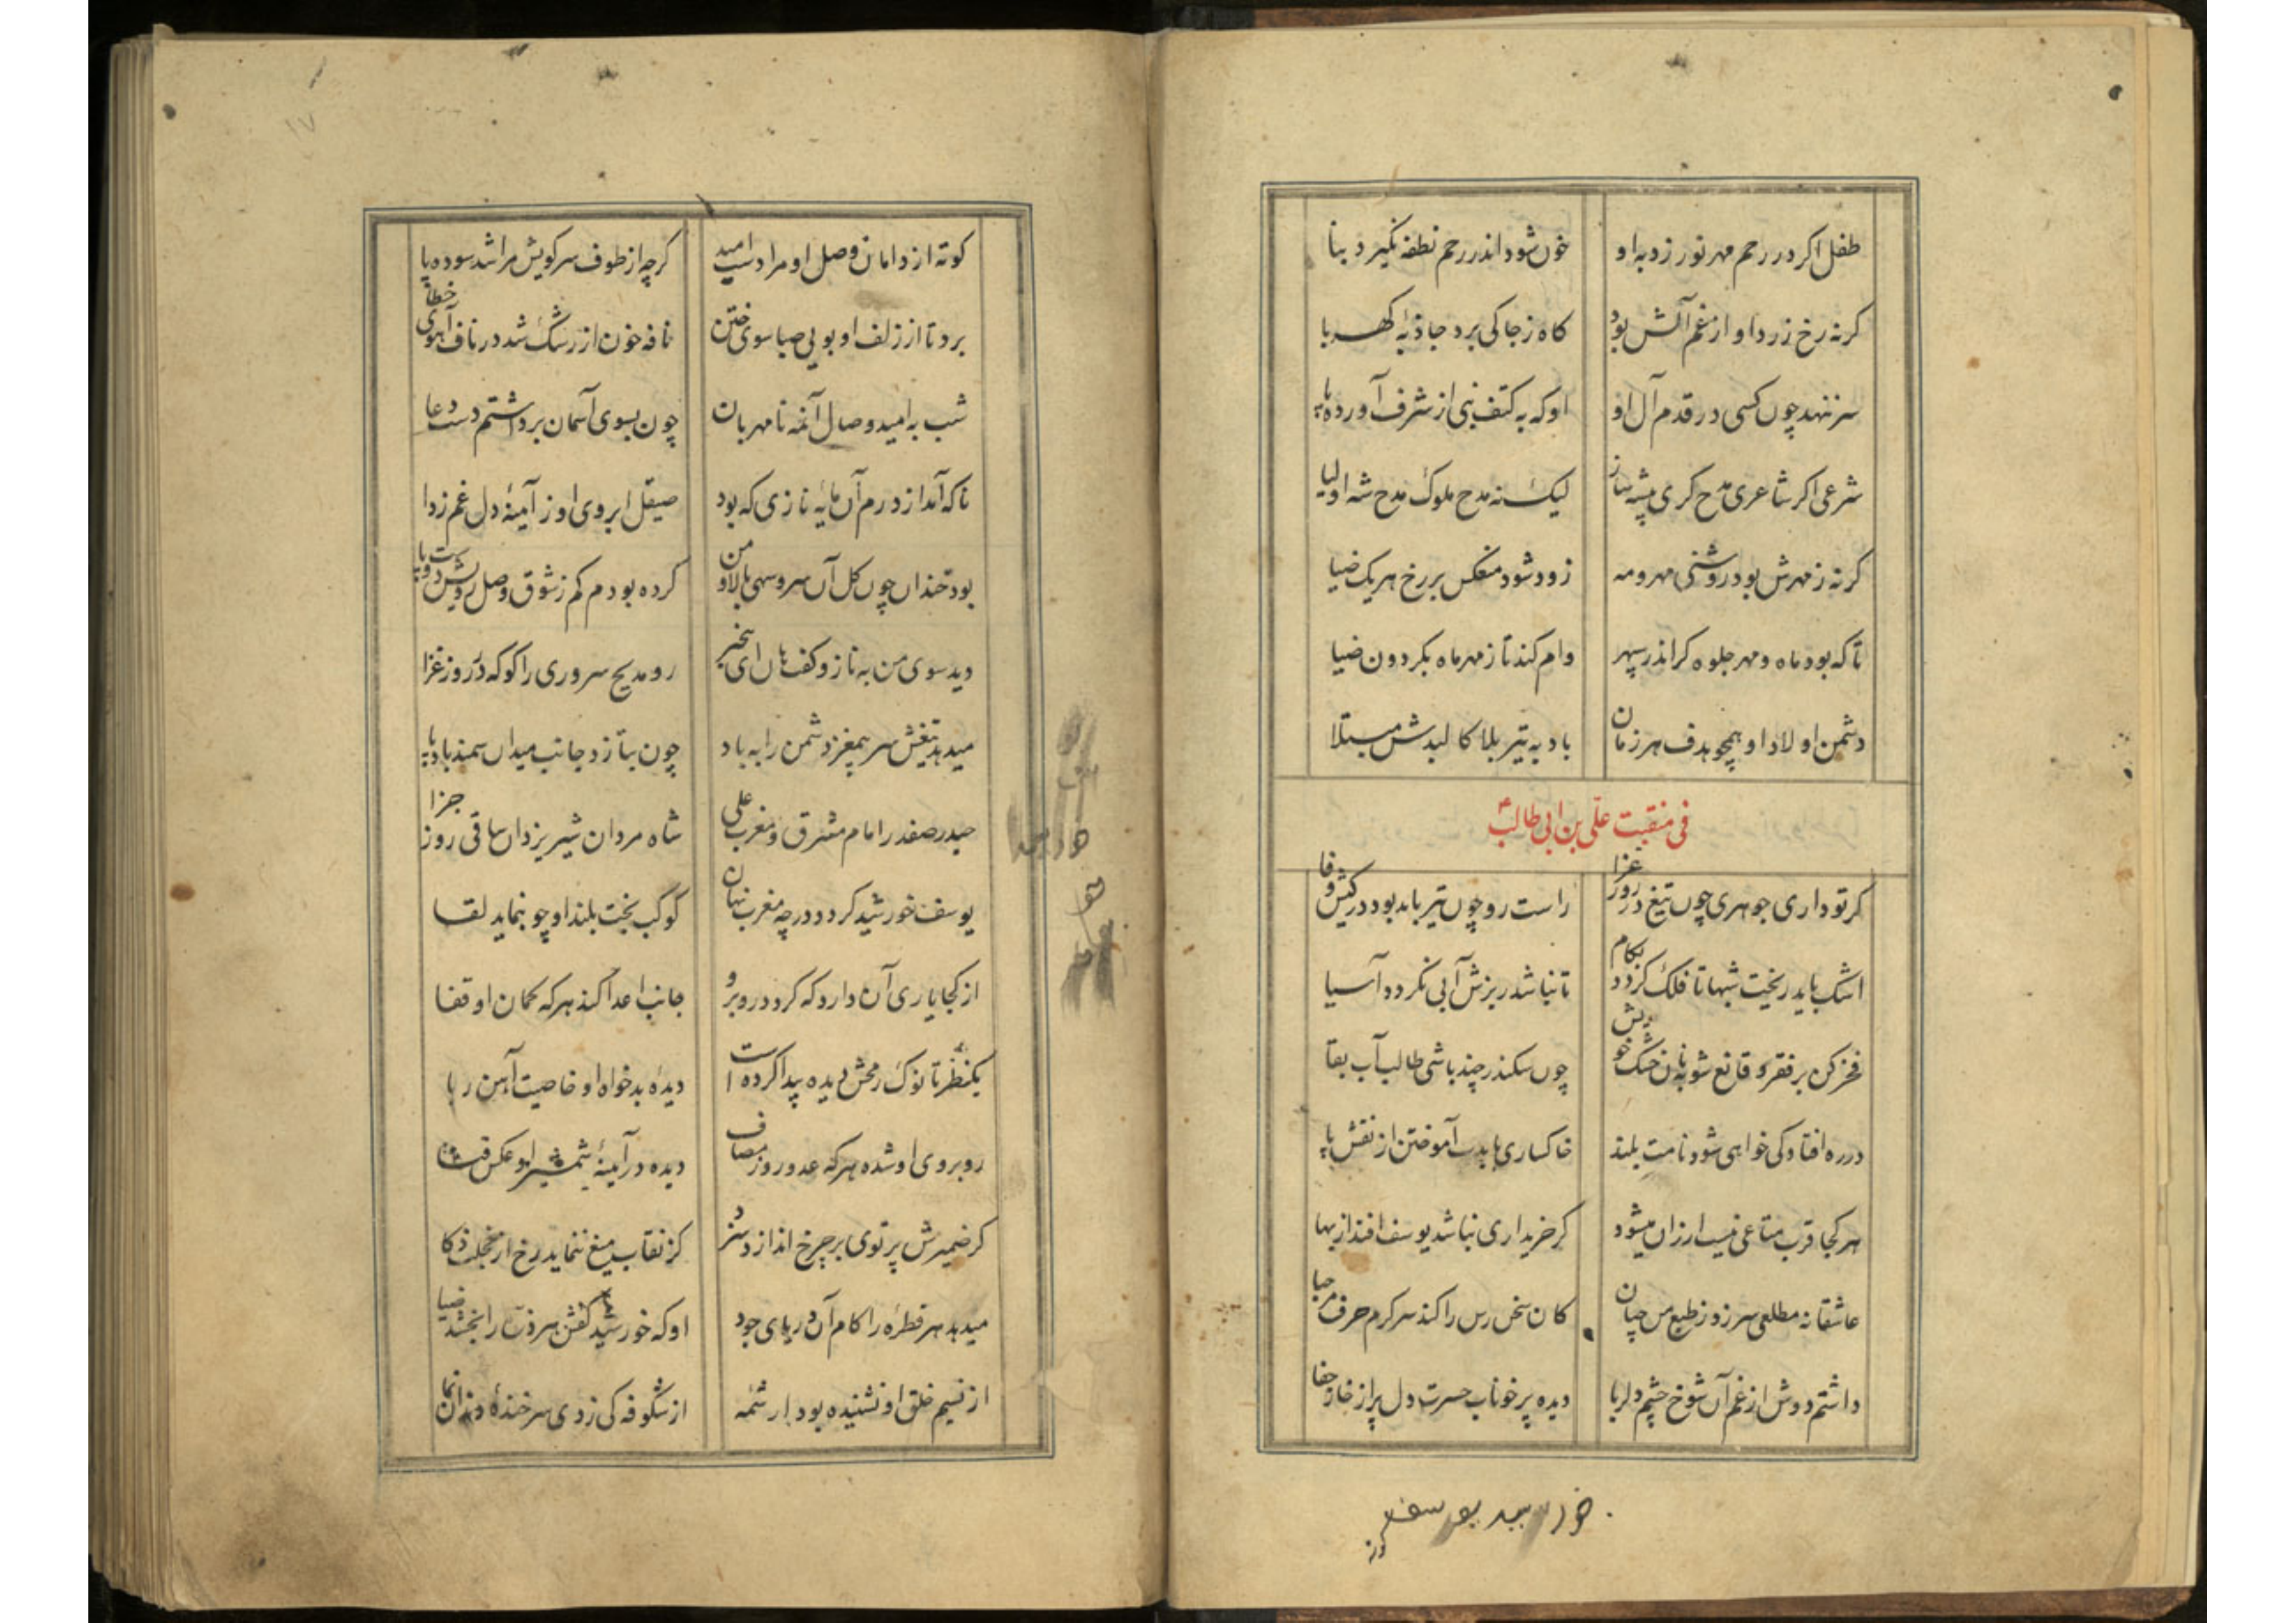 طفل اکر در رحم مهر نورزد به او خون شود اندر رحم نطفه نکیرد بنا
کرنه رخ زرد او از غم آلش بود کاه ز جا کی برد جاذبهٔ کهربا
سر ننهد چون کسی در قدم آل او او که به کتف نبی از شرف آورده پا
شرعی اکر شاعری مدح کری پیشه ساز لیک نه مدح ملوک مدح شه اولیا
کرنه ز مهرش بود روشنی مهر و مه زود شود منعکس بر رخ هر یک ضیا
تا که بود ماه و مهر جلوه کر اندر سپهر وام کند تا ز مهر ماه بکردون ضیا
دشمن اولاد او همچو هدف هر زمان باد به تیر بلا کالبدش مبتلا
فی منقبت علی بن ابی طالب
کر تو داری جوهری چون تیغ در روز غزا راست رو چون تیر باید بود در کیش وفا
اشک باید ریخت شبها تا فلک کردد بکام تا نباشد ریزش آبی نکردد آسیا
فخر کن بر فقر و قانع شو به نان خشک خویش چون سکندر چند باشی طالب آب بقا
در ره افتادکی خواهی شود نامت بلند خاکساری بایدت آموختن از نقش پا
هر کجا قرب متاعی نیست ارزان میشود کر خریداری نباشد یوسف افتد از بها
عاشقانه مطلعی سر زد ز طبع من چنان کان سخن رس را کند سرکرم حرف مرحبا
داشتم دوش از غم آن شوخ چشم دلربا دیده پر خوناب حسرت دل پر از خار جفا
خورشید یوسف
کوته از دامان وصل او مرا دست امید کرچه از طوف سر کویش مرا شد سوده پا
برد تا از زلف او بویی صبا سوی ختن نافه خون از رشک شد در ناف آهوی خطا
شب به امید وصال آنمه نامهربان چون بسوی آسمان برداشتم دست دعا
ناکه آمد از درم آن مایهٔ نازی که بود صیقل ابروی او ز آینهٔ دل غم زدا
بود خندان چون کل آن سرو سهی بالا و من کرده بودم کم ز شوق وصل رویش دست و پا
دید سوی من به ناز و کفت هان ای بیخبر رو مدیح سروری را کو که در روز غزا
میدهد تیغش سر بیمغز دشمن را به باد چون بتازد جانب میدان سمند بادپا
حیدر صفدر امام مشرق و مغرب علی شاه مردان شیر یزدان ساقی روز جزا
یوسف خورشید کردد در چه مغرب نهان کوکب بخت بلند او چو بنماید لقا
از کجا یارای آن دارد که کردد روبرو جانب اعدا کند هر که کمان او قفا
یکنظر تا نوک رمحش دیده پیدا کرده است دیدهٔ بدخواه او خاصیت آهن ربا
روبروی او شده هر که عدو روز مصاف دیده در آینهٔ شمشیر او عکس فنا
کر ضمیرش پرتوی بر چرخ اندازد سزد کز نقاب میغ ننماید رخ از خجلت ذکا
میدهد هر قطره را کام آن دریای جود او که خورشید کفش هر ذره را بخشد ضیا
از نسیم خلق او نشنیده بود ار شمه از شکوفه کی زدی سر خندهٔ دندان نما